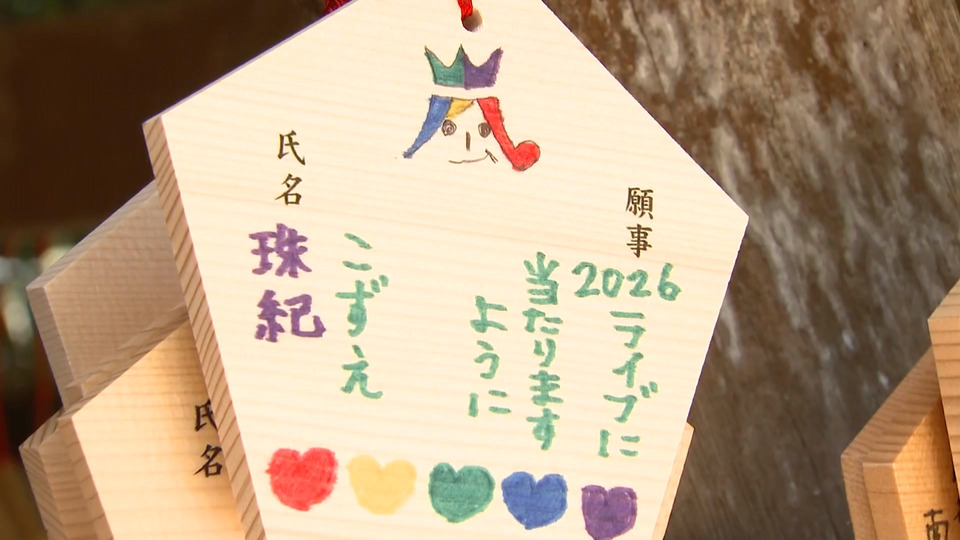 願事
2026
ライブに
当たります
ように
氏名
こずえ
珠紀
氏名